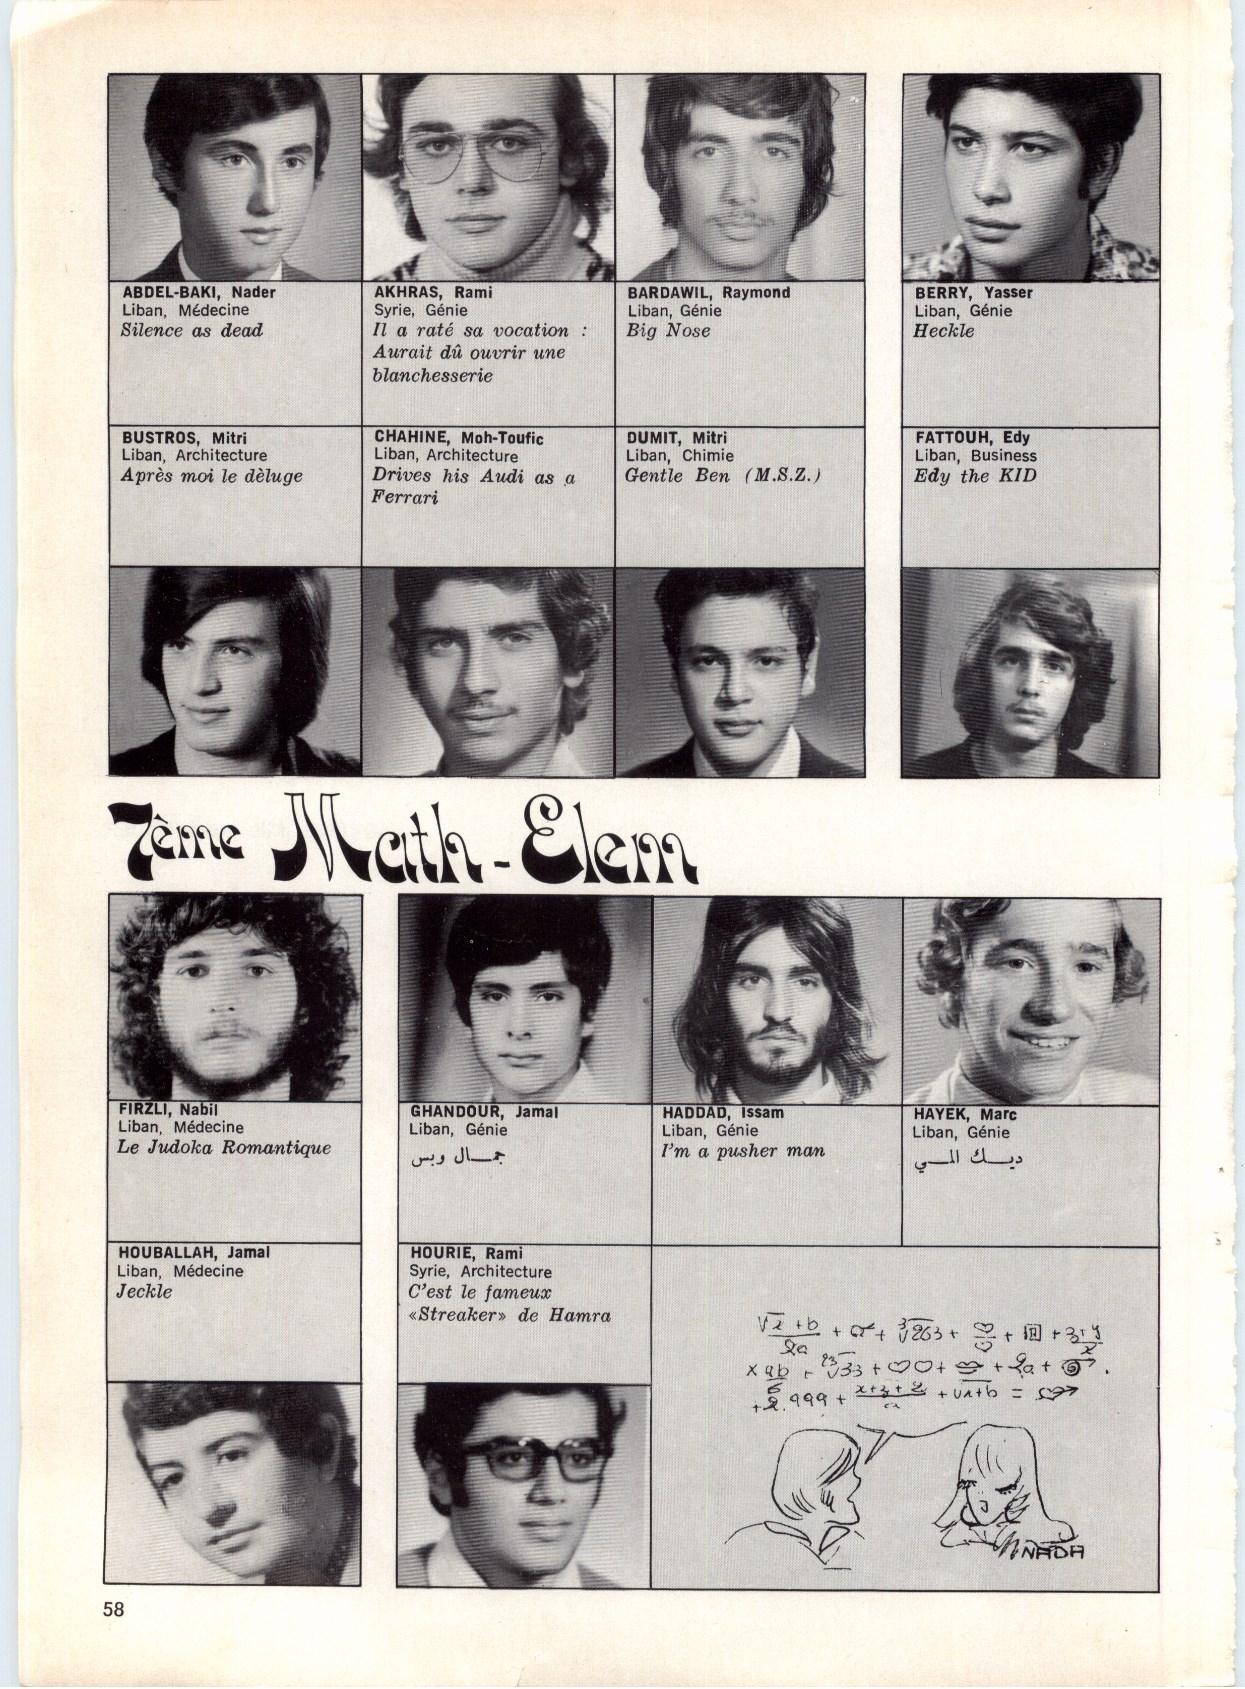 ABDEL-BAKI, Nader
Liban, Médecine
Silence as dead
AKHRAS, Rami
Syrie, Génie
Il a raté sa vocation :
Aurait dû ouvrir une
blanchesserie
BARDAWIL, Raymond
Liban, Génie
Big Nose
BERRY, Yasser
Liban, Génie
Heckle
BUSTROS, Mitri
Liban, Architecture
Après moi le dèluge
CHAHINE, Moh-Toufic
Liban, Architecture
Drives his Audi as a
Ferrari
DUMIT, Mitri
Liban, Chimie
Gentle Ben (M.S.Z.)
FATTOUH, Edy
Liban, Business
Edy the KID
7ème Math-Elem
FIRZLI, Nabil
Liban, Médecine
Le Judoka Romantique
GHANDOUR, Jamal
Liban, Génie
جمال وبس
HADDAD, Issam
Liban, Génie
I'm a pusher man
HAYEK, Marc
Liban, Génie
ديك المي
HOUBALLAH, Jamal
Liban, Médecine
Jeckle
HOURIE, Rami
Syrie, Architecture
C'est le fameux
«Streaker» de Hamra
NADA
58